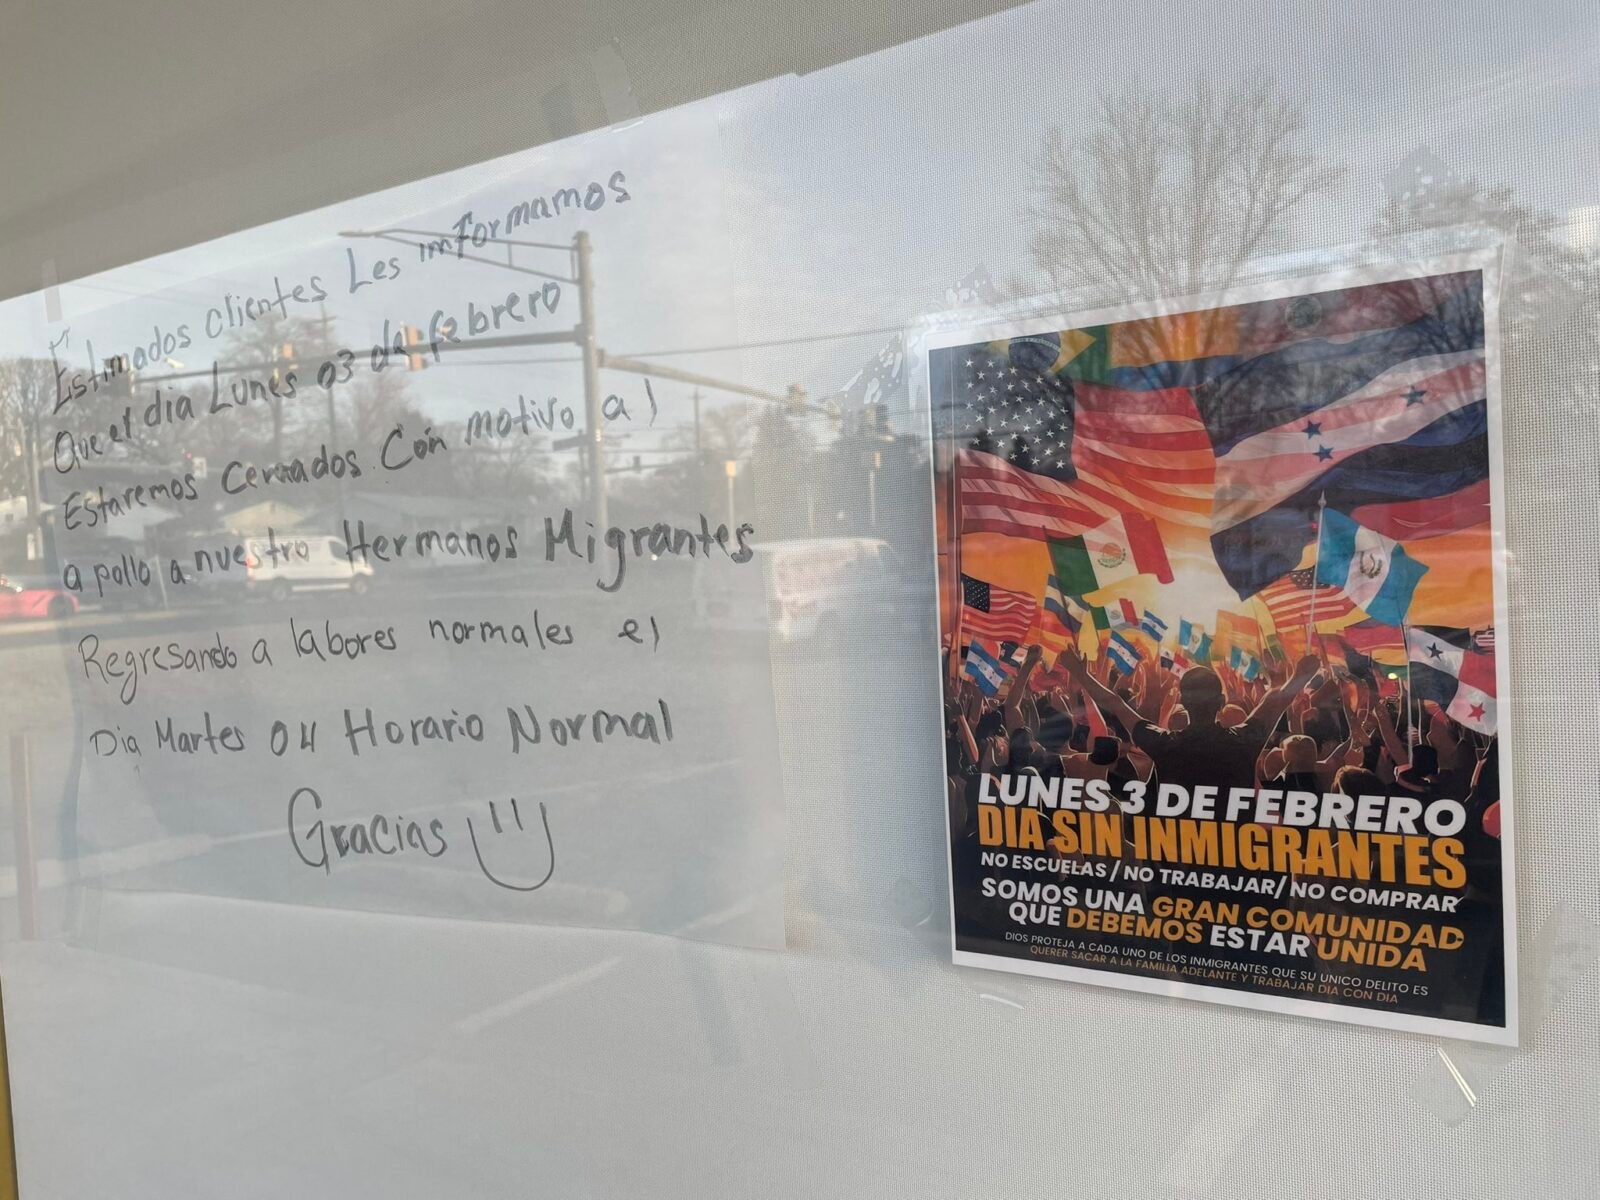 Estimados clientes Les imformamos
Que el dia Lunes 03 de febrero
Estaremos cerrados Con motivo al
apollo a nuestro Hermanos Migrantes
Regresando a labores normales el
Dia Martes 04 Horario Normal
Gracias
LUNES 3 DE FEBRERO
DIA SIN INMIGRANTES
NO ESCUELAS / NO TRABAJAR/ NO COMPRAR
SOMOS UNA GRAN COMUNIDAD
QUE DEBEMOS ESTAR UNIDA
DIOS PROTEJA A CADA UNO DE LOS INMIGRANTES QUE SU UNICO DELITO ES
QUERER SACAR A LA FAMILIA ADELANTE Y TRABAJAR DIA CON DIA